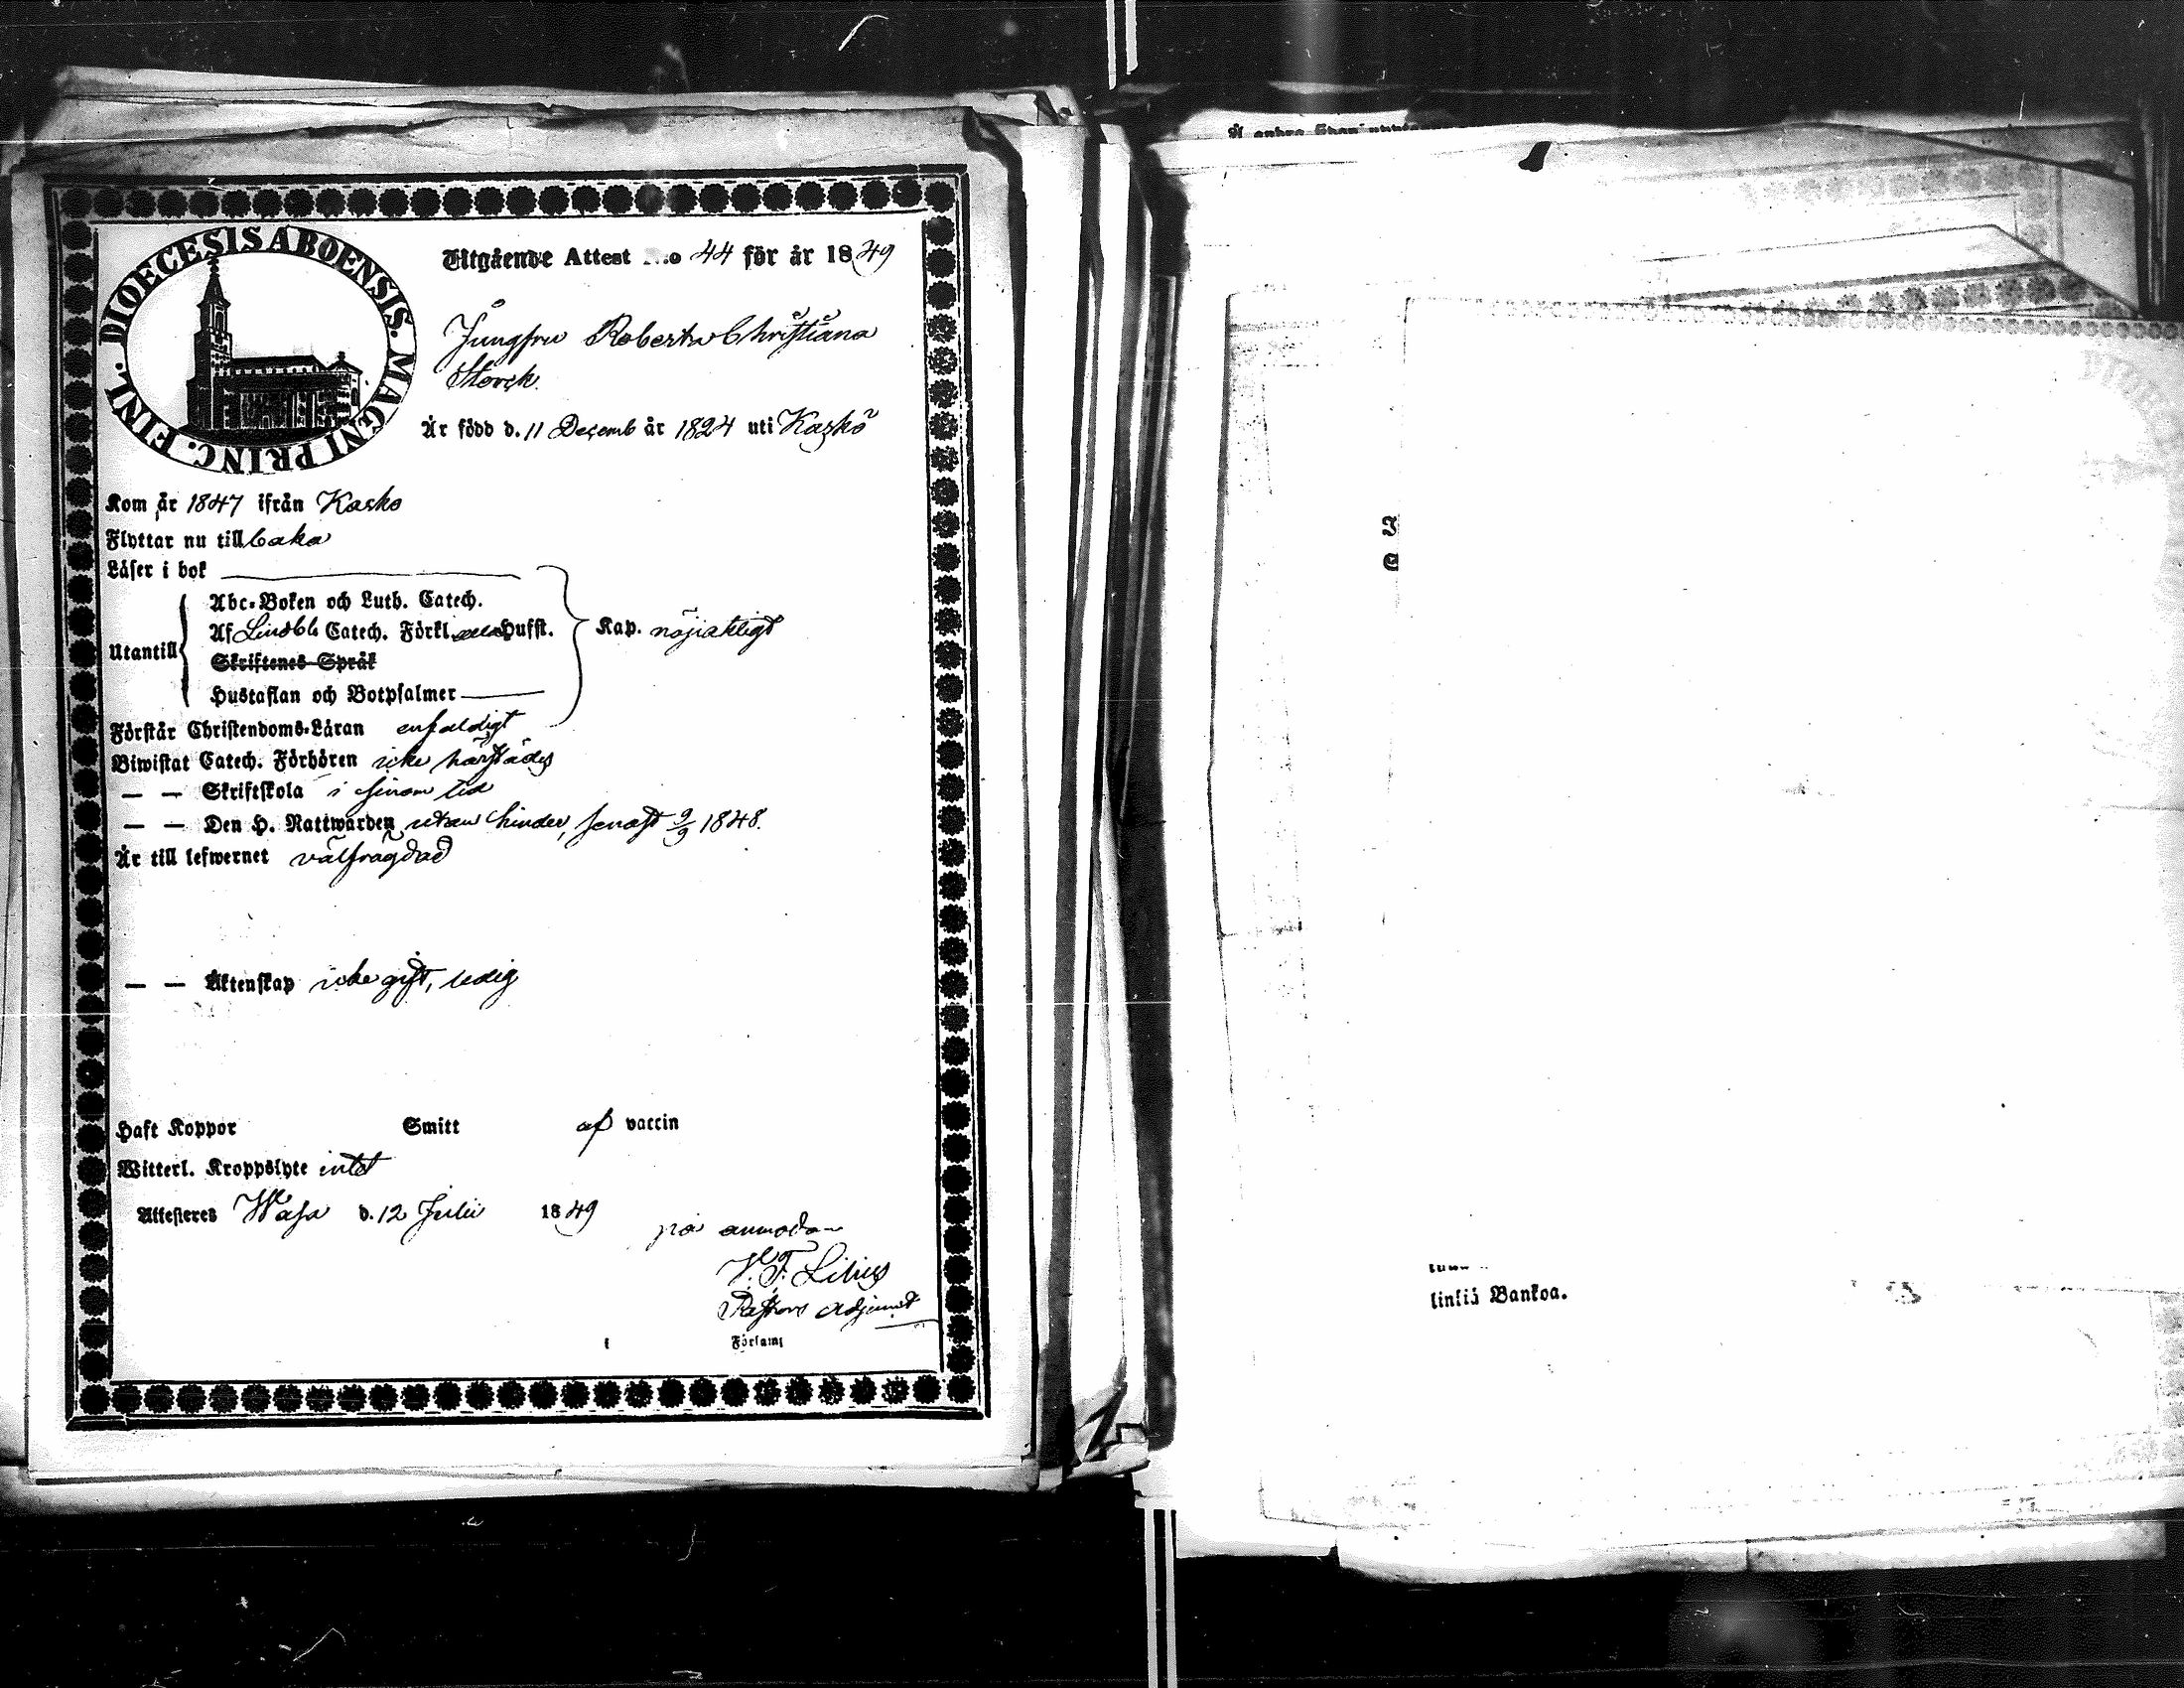 DIOECESIS ABOENSIS. MAGNI PRINC. FINL.
Utgående Attest No 44 för år 1849
Jungfru Roberta Christiana
Storck.
Är född d. 11 Decemb år 1824 uti Kaskö
Kom år 1847 ifrån Kasko
Flyttar nu tillbaka
Läser i bok
Abc-Boken och Luth. Catech.
Utantill
Af Lindbls Catech. Förkl. Husst.
Kap. nöjaktligt
Skriftenes Språk
Hustaflan och Botpsalmer
Förstår Christendoms-Läran enfaldigt
Biwistat Catech. Förhören icke härstädes
— — Skriftskola i sinom tid
— — Den H. Nattwarden utan hinder, senast 9/9 1848.
Är till lefwernet välfrägdad
— — Äktenskap icke gift, ledig
Haft Koppor Smitt af vaccin
Witterl. Kroppslyte intet
Attesteres Wasa d. 12 Julii 1849
på anmodan
F. Lilius
Pastors Adjunct
Försam
linkiä Bankoa.